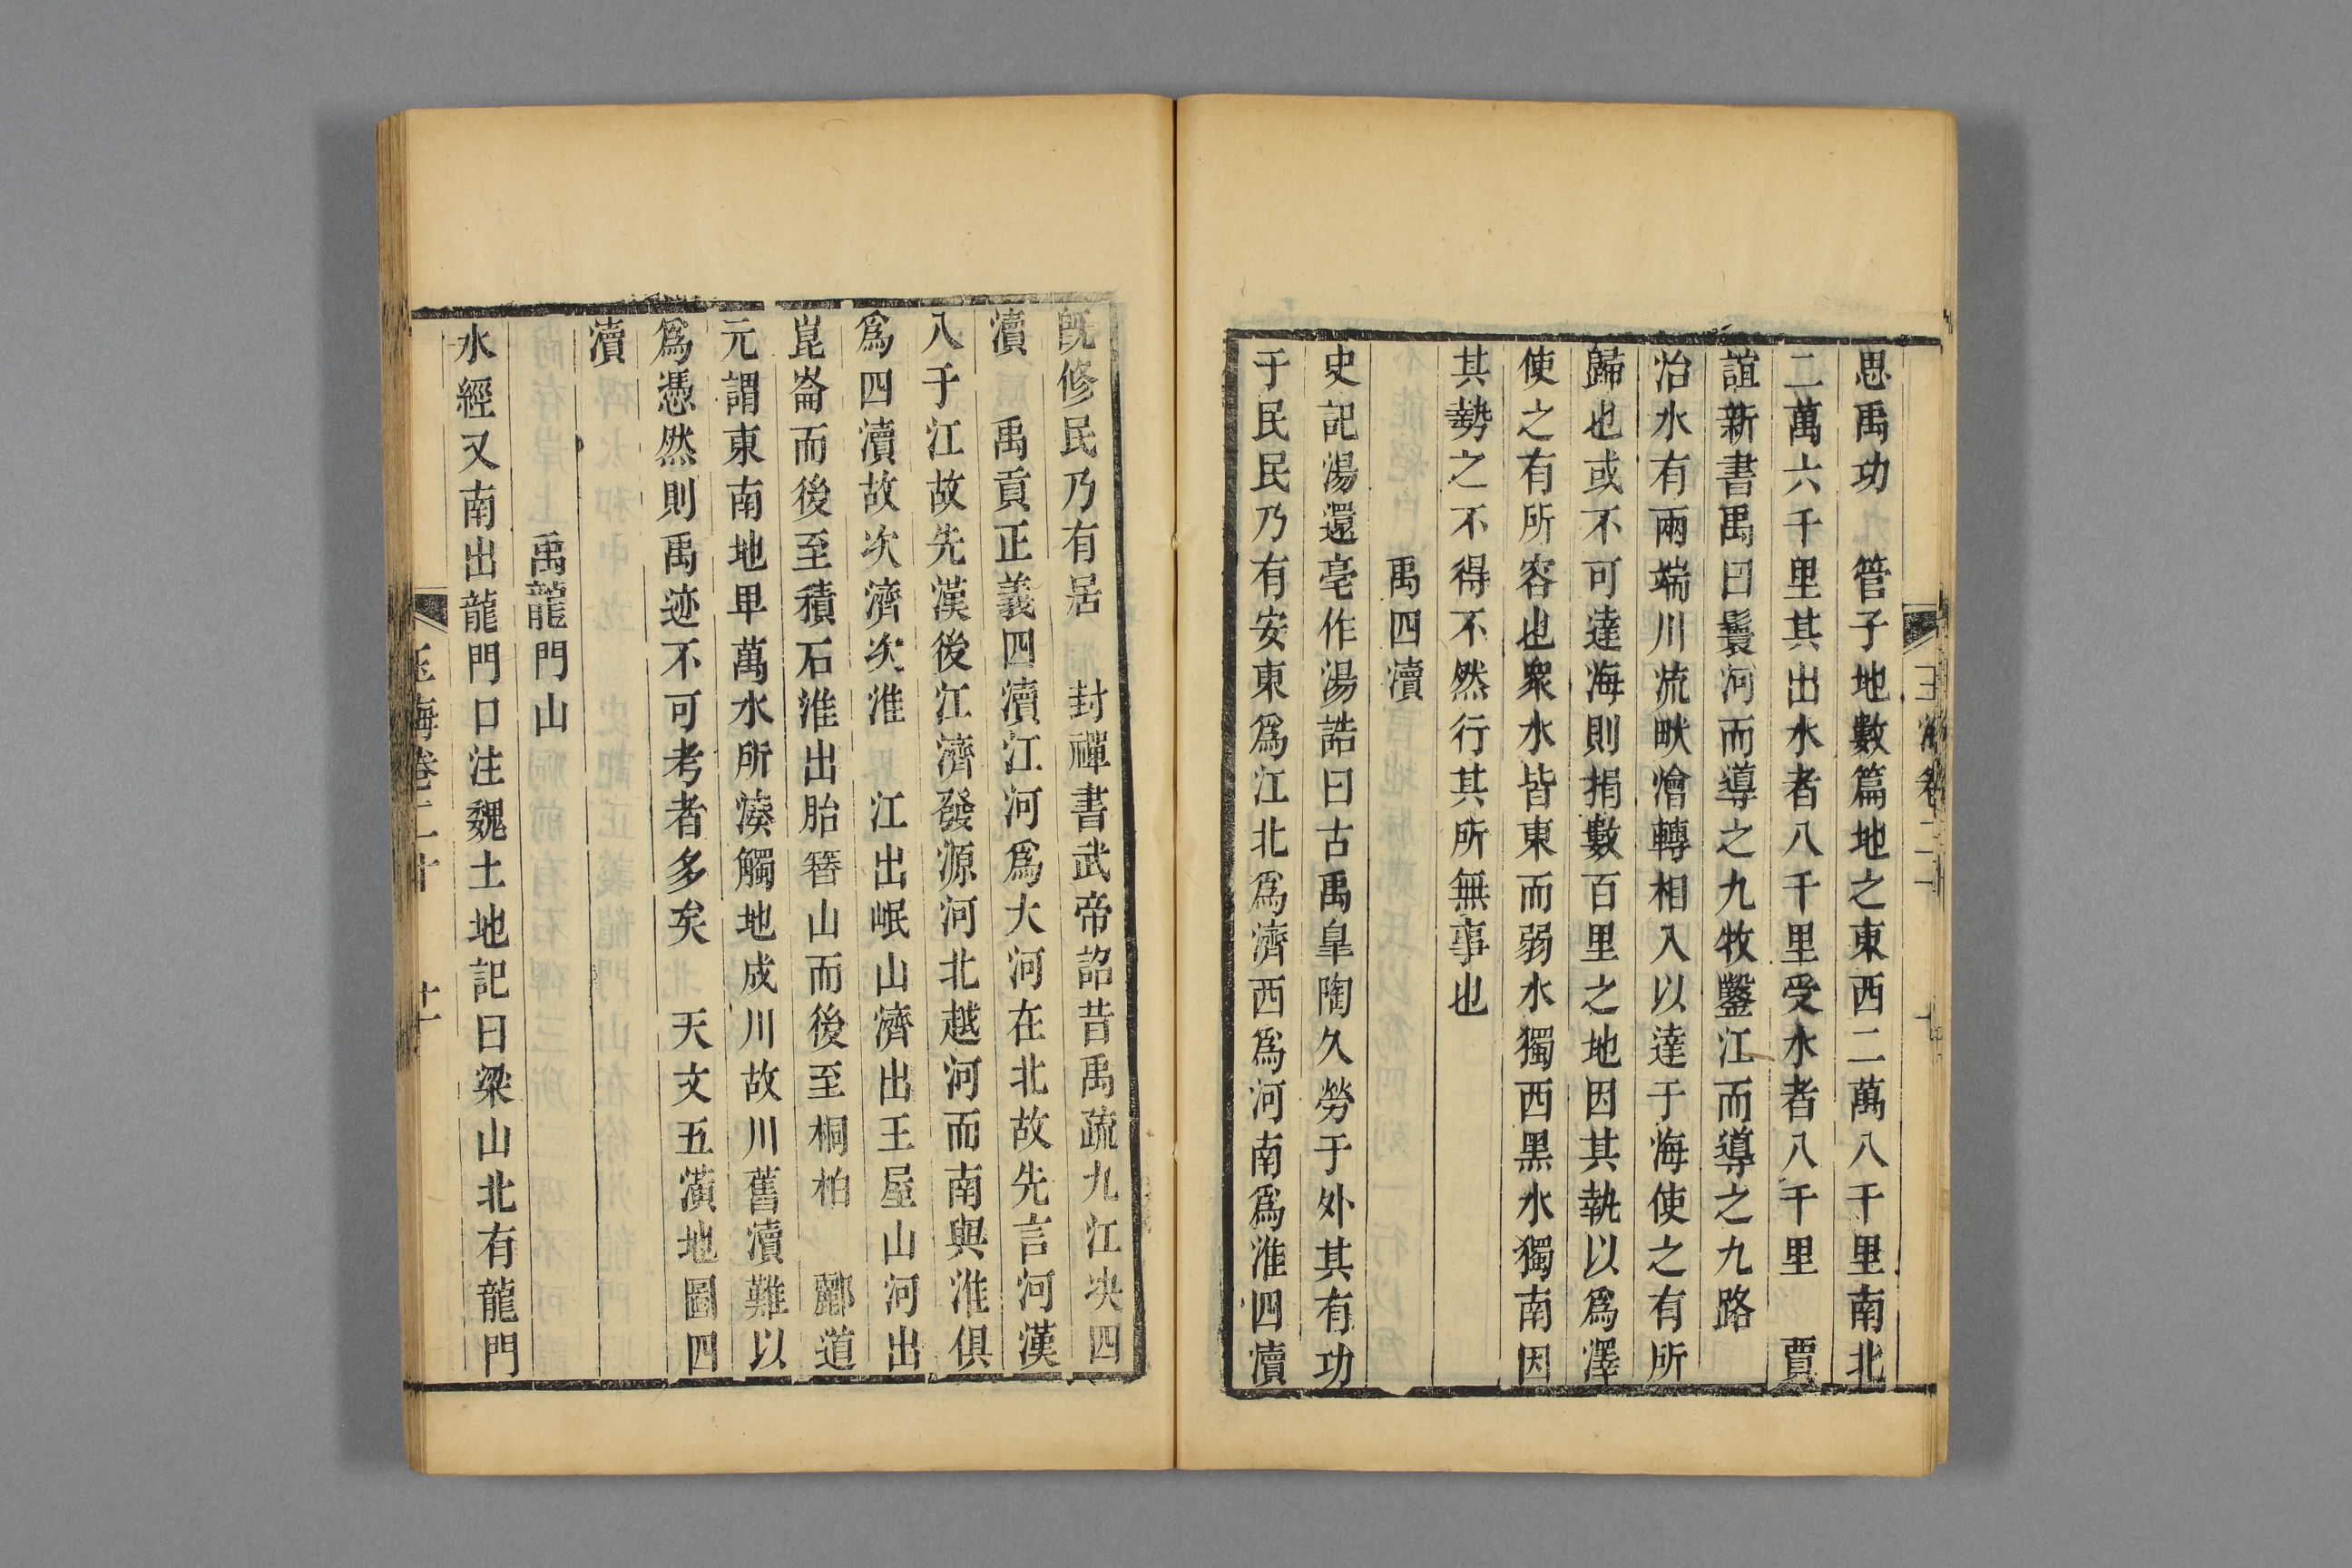 思禹功　管子地數篇地之東西二萬八千里南北
二萬六千里其出水者八千里受水者八千里　賈
誼新書禹曰鬟河而導之九牧鑿江而導之九路
治水有兩端川流畎澮轉相入以達于海使之有所
歸也或不可達海則捐數百里之地因其執以爲澤
使之有所容也衆水皆東而弱水獨西黑水獨南因
其勢之不得不然行其所無事也
禹四瀆
史記湯還亳作湯誥曰古禹臯陶久勞于外其有功
于民民乃有安東爲江北爲濟西爲河南爲淮四瀆
旣修民乃有居　封禪書武帝詔昔禹疏九江决四
瀆　禹貢正義四瀆江河爲大河在北故先言河漢
入于江故先漢後江濟發源河北越河而南與淮俱
爲四瀆故次濟次淮　江出岷山濟出王屋山河出
崑崙而後至積石淮出胎簪山而後至桐柏　酈道
元謂東南地卑萬水所湊觸地成川故川舊瀆難以
爲憑然則禹迹不可考者多矣　天文五潢地圖四
瀆
禹龍門山
水經又南出龍門口注魏土地記曰梁山北有龍門
玉海卷二十　十一